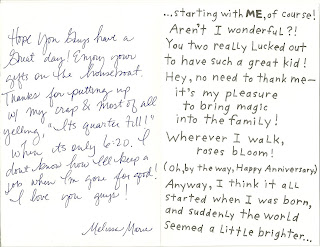 Hope you guys have a
Great day! Enjoy your
gifts on the houseboat.
Thanks for putting up
w/ my crap & most of all
yelling, "Its quarter till!"
when its only 6:20. I
dont know how I'll keep a
job when I'm gone for good!
I love you guys!
Melissa Marie
...starting with ME, of course!
Aren't I wonderful?!
You two really Lucked out
to have such a great kid!
Hey, no need to thank me—
it's my pleasure
to bring magic
into the family!
Wherever I walk,
roses bloom!
(Oh, by the way, Happy Anniversary)
Anyway, I think it all
started when I was born,
and suddenly the world
Seemed a little brighter...